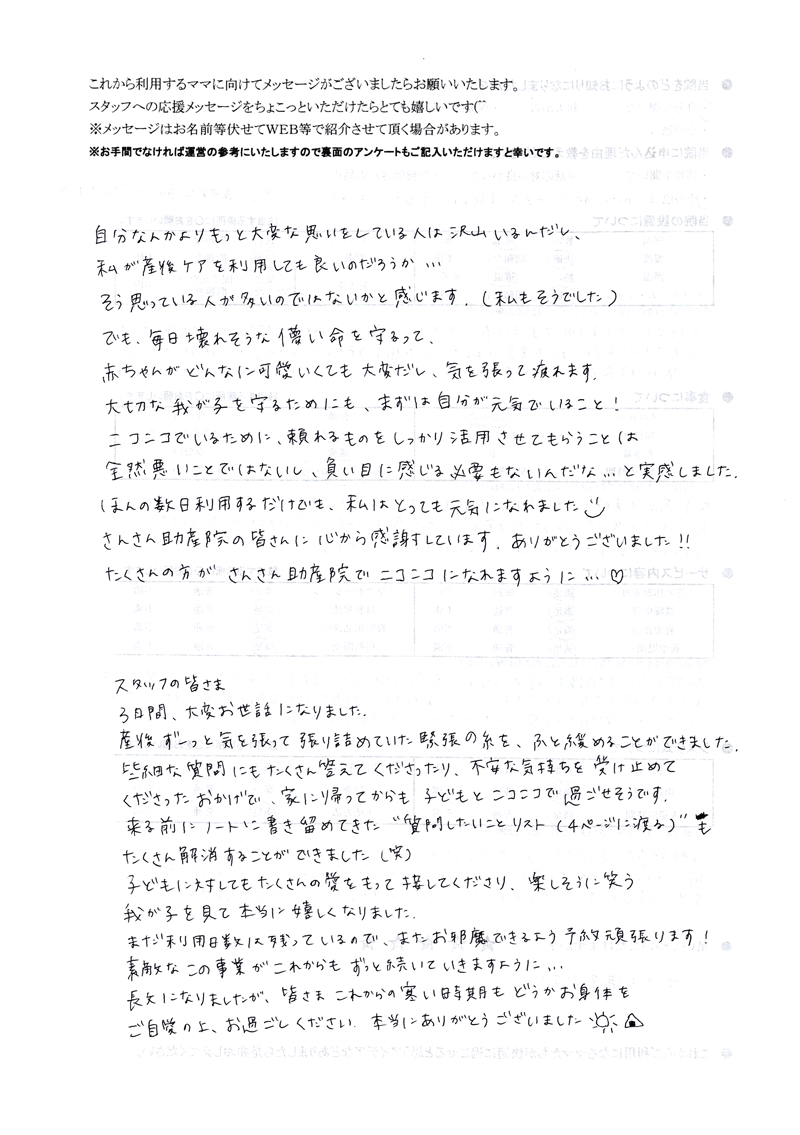 これから利用するママに向けてメッセージがございましたらお願いいたします。
スタッフへの応援メッセージをちょこっといただけたらとても嬉しいです(^^
※メッセージはお名前等伏せてWEB等で紹介させて頂く場合があります。
※お手間でなければ運営の参考にいたしますので裏面のアンケートもご記入いただけますと幸いです。
自分なんかよりもっと大変な思いをしている人は沢山いるんだし、
私が産後ケアを利用しても良いのだろうか…
そう思っている人が多いのではないかと感じます。(私もそうでした)
でも、毎日壊れそうな儚い命を守るって、
赤ちゃんがどんなに可愛いくても大変だし、気を張って疲れます。
大切な我が子を守るためにも、まずは自分が元気でいること!
ニコニコでいるために、頼れるものをしっかり活用させてもらうことは
全然悪いことではないし、負い目に感じる必要もないんだな…と実感しました。
ほんの数日利用するだけでも、私はとっても元気になれました☺
さんさん助産院の皆さんに心から感謝しています。ありがとうございました!!
たくさんの方がさんさん助産院でニコニコになれますように…♡
スタッフの皆さま
3日間、大変お世話になりました。
産後ずーっと気を張って張り詰めていた緊張の糸を、ふと緩めることができました。
些細な質問にもたくさん答えてくださったり、不安な気持ちを受け止めて
くださったおかげで、家に帰ってからも子どもとニコニコで過ごせそうです。
来る前にノートに書き留めてきた"質問したいことリスト(4ページに渡る)"も
たくさん解消することができました(笑)
子どもに対してもたくさんの愛をもって接してくださり、楽しそうに笑う
我が子を見て本当に嬉しくなりました。
まだ利用日数は残っているので、またお邪魔できるよう予約頑張ります!
素敵なこの事業がこれからもずっと続いていきますように…
長文になりましたが、皆さまこれからの寒い時期もどうかお身体を
ご自愛の上、お過ごしください。本当にありがとうございました